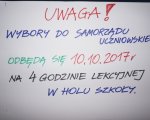 UWAGA!
WYBORY DO SAMORZĄDU
UCZNIOWSKIE
ODBĘDĄ SIĘ 10.10.2017r
NA 4 GODZINIE LEKCYJNEJ
W HOLU SZKOŁY.